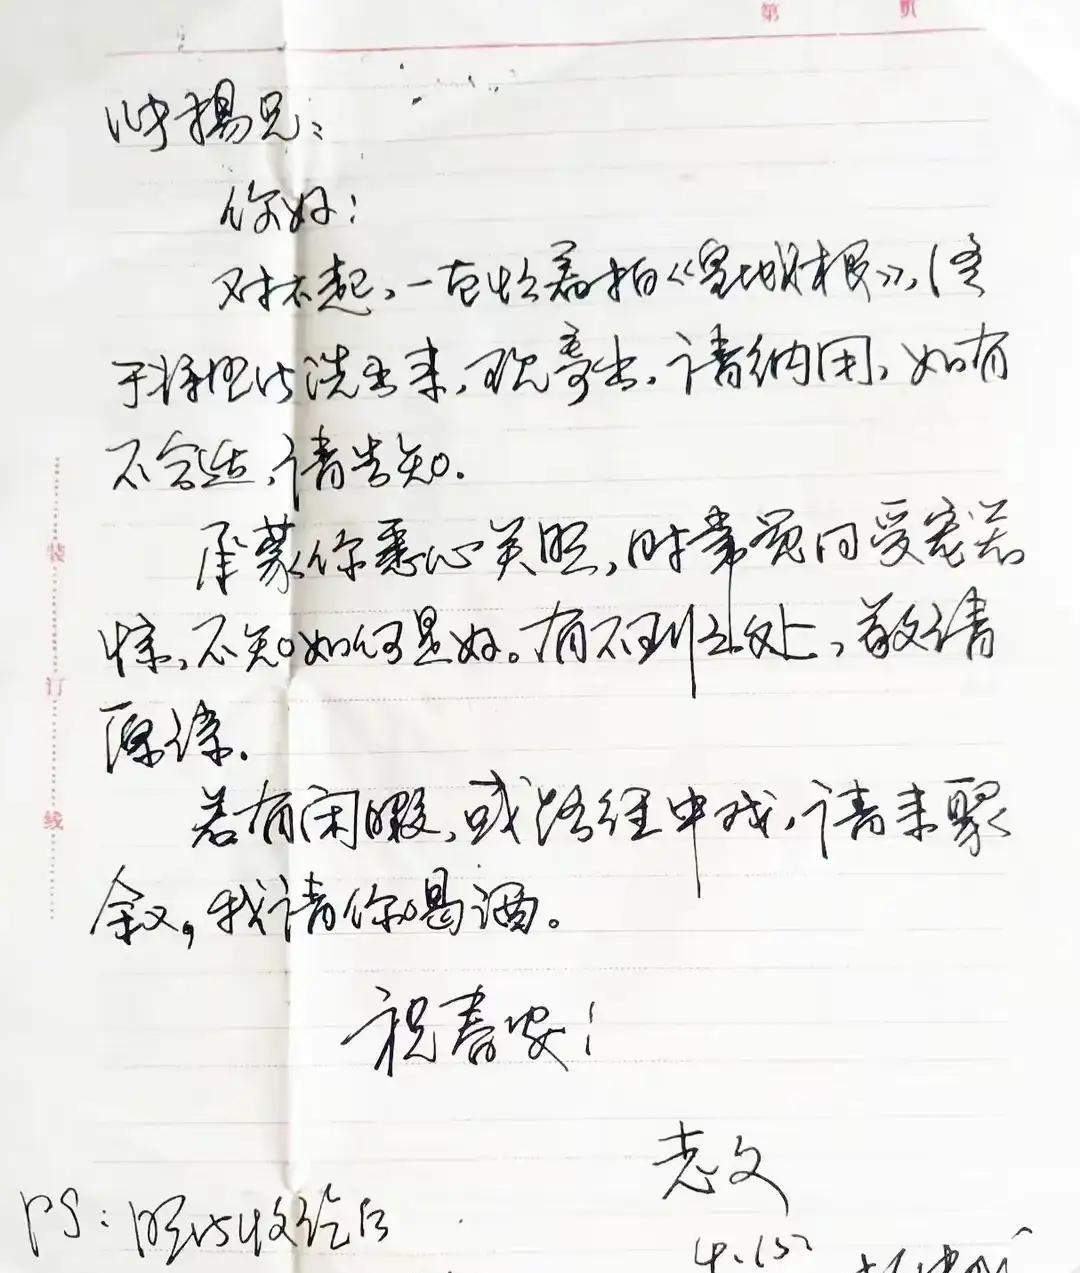 第 页
仲扬兄：
你好！
对不起，一直忙着拍《皇城根》，终
于将照片洗出来，现寄出，请纳用，如有
不合适，请告知。
承蒙你悉心关照，时常觉得受宠若
惊，不知如何是好。有不到之处，敬请
原谅。
若有闲暇，或路经中戏，请来聚
叙，我请你喝酒。
祝春安！
志文
4.15
PS：照片收给后
装
订
线